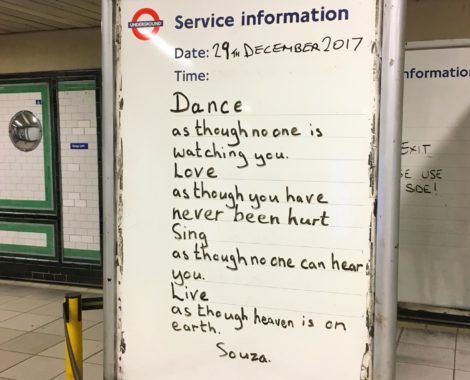 UNDERGROUND
Service information
Date: 29TH DECEMBER 2017
Time:
Dance
as though no one is
watching you.
Love
as though you have
never been hurt
Sing
as though no one can hear
you.
Live
as though heaven is on
earth.
Souza.
nformation
EXIT
SE USE
SIDE!